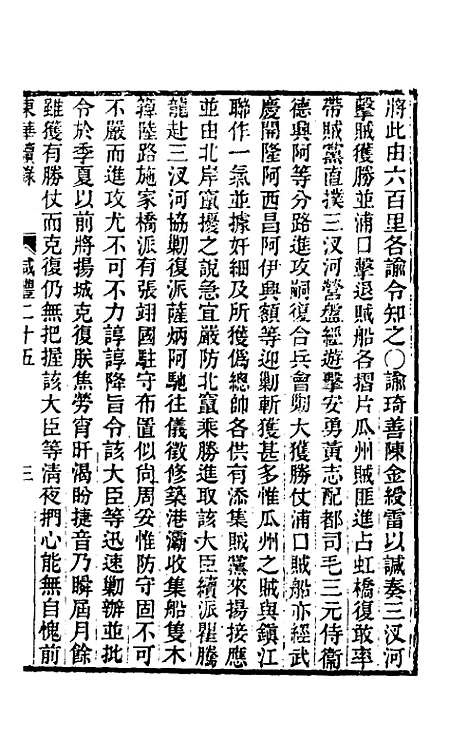 將此由六百里各諭令知之〇諭琦善陳金綬雷以諴奏三汊河
擊賊獲勝並浦口擊退賊船各摺片瓜州賊匪進占虹橋復敢率
帶賊黨直撲三汊河營盤經遊擊安勇黃志配都司毛三元侍衞
德興阿等分路進攻嗣復合兵會勦大獲勝仗浦口賊船亦經武
慶開隆阿西昌阿伊興額等迎勦斬獲甚多惟瓜州之賊與鎮江
聯作一氣並據奸細及所獲僞總帥各供有添集賊黨來揚接應
並由北岸竄擾之說急宜嚴防北竄乘勝進取該大臣續派瞿騰
龍赴三汊河協勦復派薩炳阿馳往儀徵修築港灞收集船隻木
簰陸路施家橋派有張翊國駐守布置似尚周妥惟防守固不可
不嚴而進攻尤不可不力諄諄降旨令該大臣等迅速勦辦並批
令於季夏以前將揚城克復朕焦勞宵旰渴盼捷音乃瞬屆月餘
雖獲有勝仗而克復仍無把握該大臣等清夜捫心能無自愧前
東華續錄 咸豐二十五 三